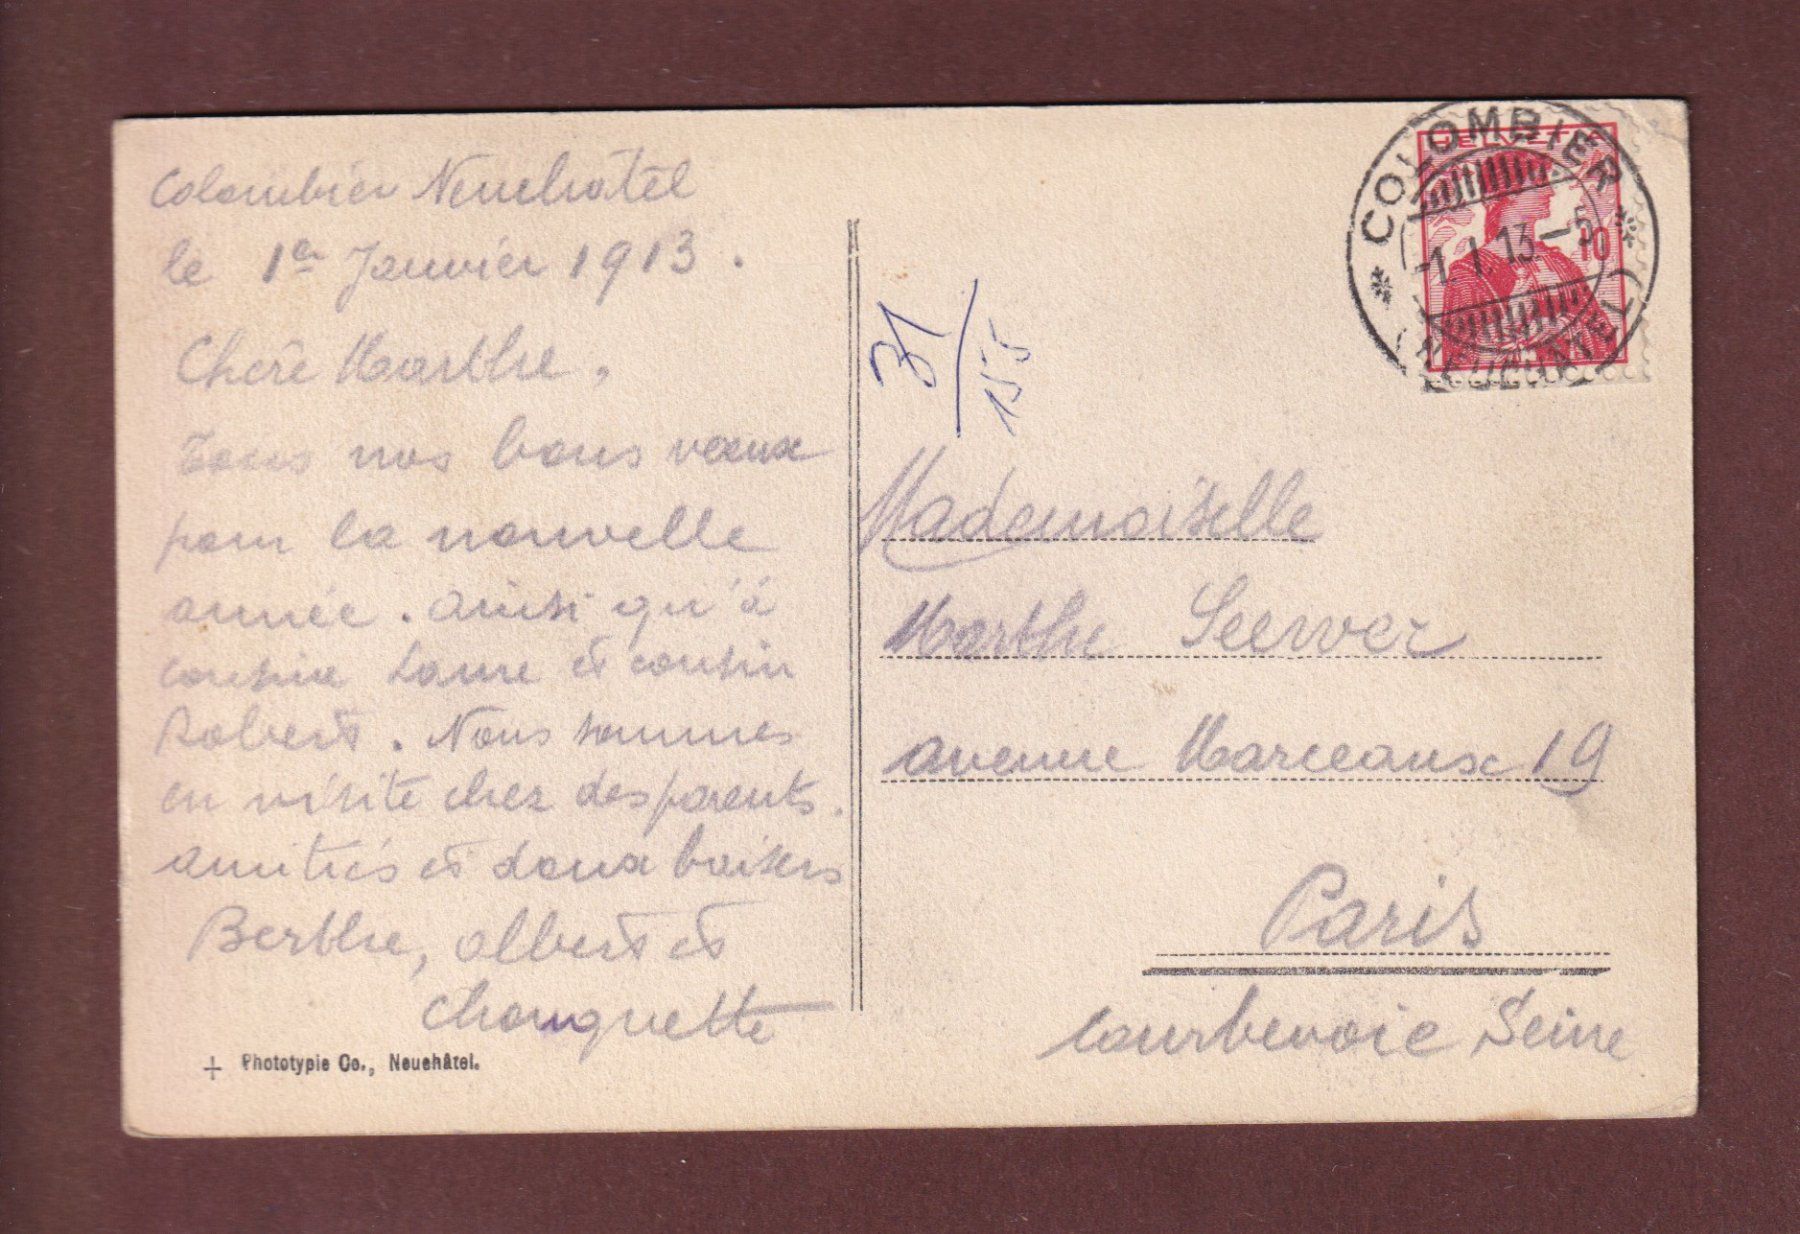 Colombier Neuchâtel
le 1er Janvier 1913.
Chère Marthe,
Tous nos bons vœux
pour la nouvelle
année. Ainsi qu'à
cousine Laure et cousin
Robert. Nous sommes
en visite chez des parents.
Amitiés et doux baisers
Berthe, Albert et
Chouquette
Phototypie Co., Neuchâtel.
COLOMBIER
(NEUCHATEL)
-1.I.13-5
HELVETIA
10
31/155
Mademoiselle
Marthe Seewer
avenue Marceaux 19
Paris
Courbevoie Seine